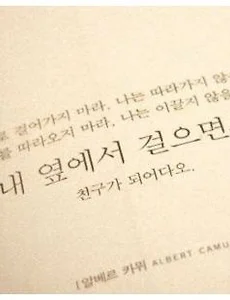 로 걸어가지 마라. 나는 따라가지 않을
를 따라오지 마라. 나는 이끌지 않을
내 옆에서 걸으면
친구가 되어다오.
[알베르 카뮈 ALBERT CAMU